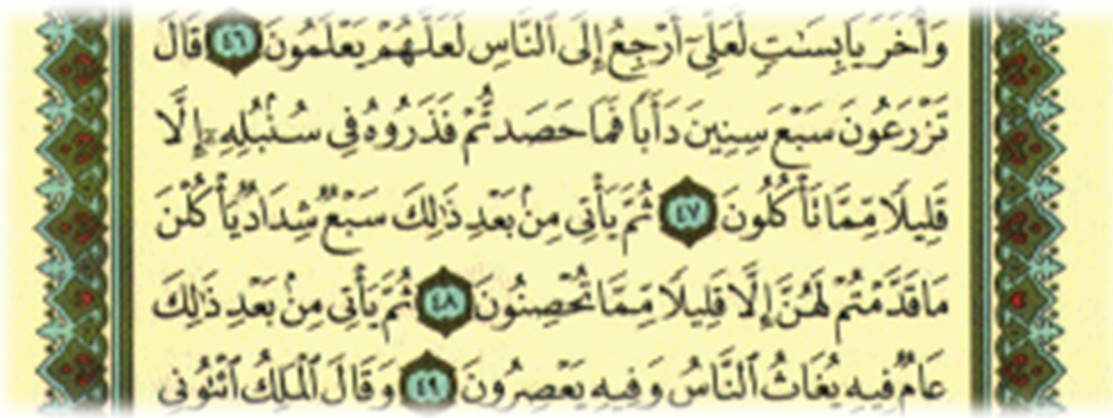 وَأُخَرَ يَابِسَـٰتٍ لَّعَلِّىٓ أَرْجِعُ إِلَى ٱلنَّاسِ لَعَلَّهُمْ يَعْلَمُونَ ٤٦ قَالَ
تَزْرَعُونَ سَبْعَ سِنِينَ دَأَبًا فَمَا حَصَدتُّمْ فَذَرُوهُ فِى سُنۢبُلِهِۦٓ إِلَّا
قَلِيلًا مِّمَّا تَأْكُلُونَ ٤٧ ثُمَّ يَأْتِى مِنۢ بَعْدِ ذَٰلِكَ سَبْعٌ شِدَادٌ يَأْكُلْنَ
مَا قَدَّمْتُمْ لَهُنَّ إِلَّا قَلِيلًا مِّمَّا تُحْصِنُونَ ٤٨ ثُمَّ يَأْتِى مِنۢ بَعْدِ ذَٰلِكَ
عَامٌ فِيهِ يُغَاثُ ٱلنَّاسُ وَفِيهِ يَعْصِرُونَ ٤٩ وَقَالَ ٱلْمَلِكُ ٱئْتُونِى